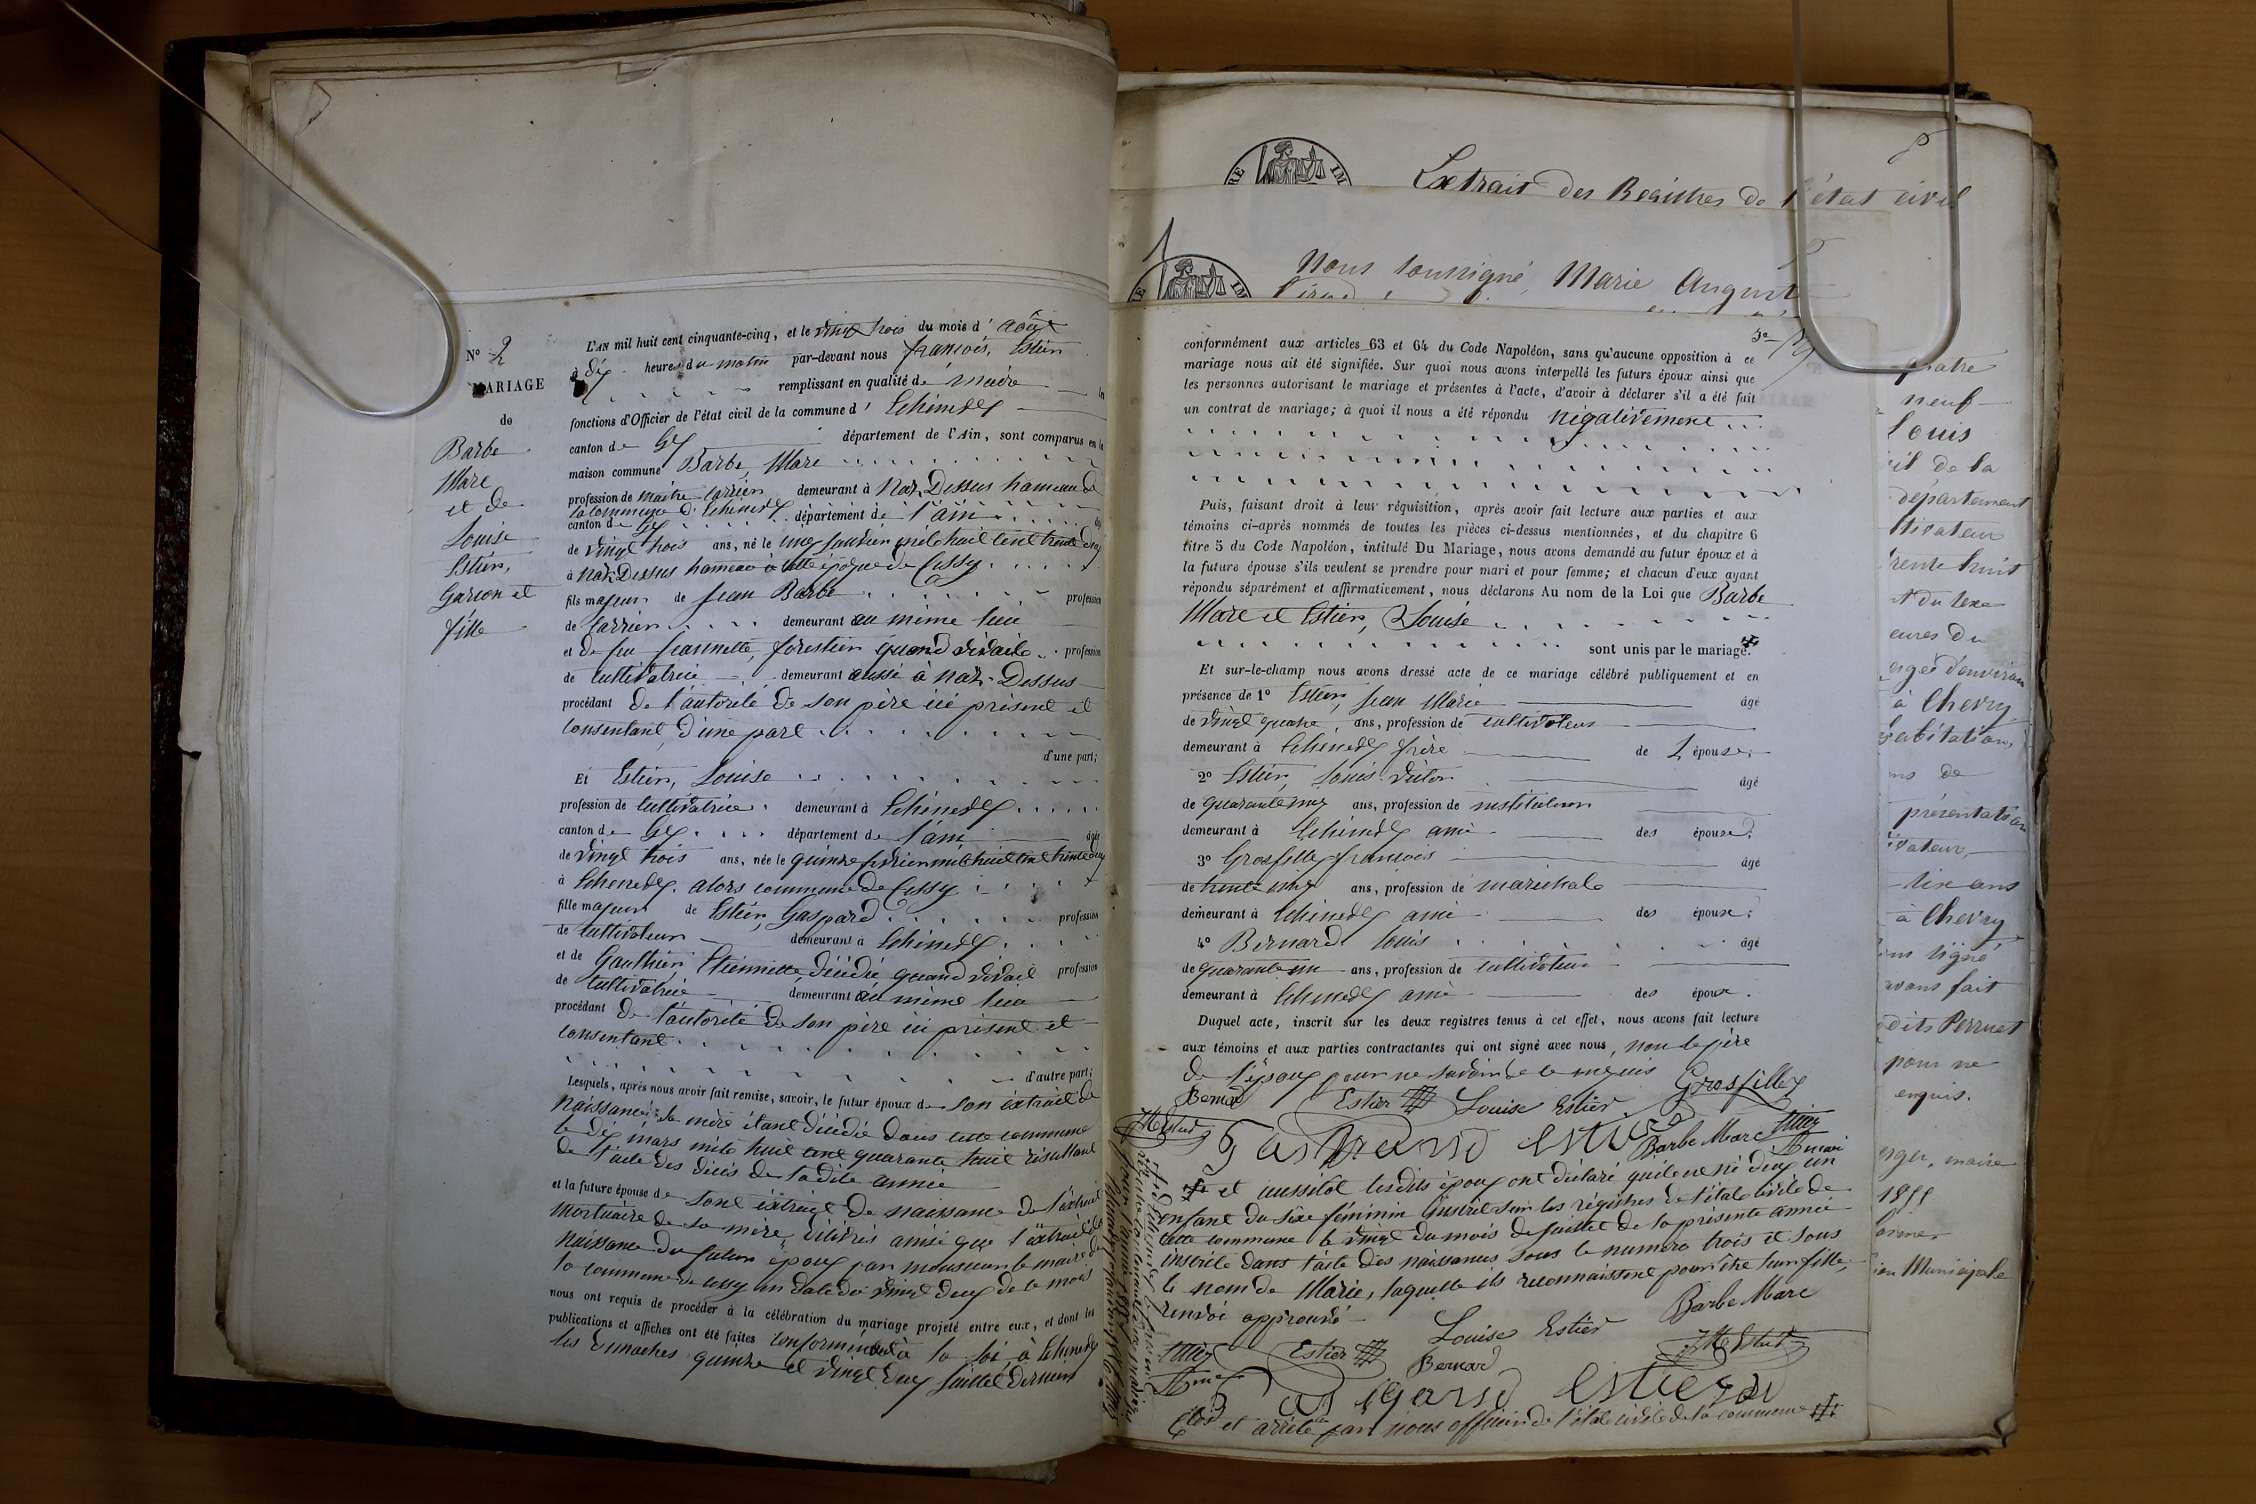 No 2
MARIAGE
de
Barbe
Marc
et de
Louise
Estier,
Garson et
fille
L'AN mil huit cent cinquante-cinq, et le vingt trois du mois d' août
à dix heures du matin par-devant nous françois, Estier
remplissant en qualité de maire les
fonctions d'Officier de l'état civil de la commune d' Echenevex
canton de Gex département de l'Ain, sont comparus en la
maison commune Barbe, Marc
profession de maitre carrier demeurant à Naz-Dessus hameau de
la commune d'Echenevex
canton de Gex département de l'ain
de vingt trois ans, né le cinq janvier mil huit cent trente deux
à Naz-Dessus hameau à cette époque de Cessy
fils majeur de Jean Barbe profession
de carrier demeurant au même lieu
et de feu Jeannette, forestier quand vivait profession
de cultivatrice demeurant aussi à Naz-Dessus
procédant de l'autorité de son père ici présent et
consentant, d'une part
d'une part;
Et Estier, Louise
profession de cultivatrice demeurant à Echenevex
canton de Gex département de l'ain âgée
de vingt trois ans, née le quinze février mil huit cent trente deux
à Echenevex alors commune de Cessy
fille majeure de Estier, Gaspard profession
de cultivateur demeurant à Echenevex
et de Gauthier, Etiennette décédée quand vivait profession
de cultivatrice demeurant au même lieu
procédant de l'autorité de son père ici présent et
consentant
d'autre part;
Lesquels, après nous avoir fait remise, savoir, le futur époux de son extrait de
naissance, la mère étant décédée dans cette commune
le dix mars mile huit cent quarante huit résultant
de l'acte des décès de ladite année
et la future épouse de sont extrait de naissance de l'extrait
mortuaire de sa mère, délivrés ainsi que l'extrait de
naissance du futur époux par monsieur le maire de
la commune de Cessy en date du vingt deux de ce mois
nous ont requis de procéder à la célébration du mariage projeté entre eux, et dont les
publications et affiches ont été faites conformément à la loi, à Echenevex
les dimanches quinze et vingt deux juillet derniers
Extrait des Registres de l'état civil
RE IM
Nous soussigné, Marie August
IM
conformément aux articles 63 et 64 du Code Napoléon, sans qu'aucune opposition à ce
mariage nous ait été signifiée. Sur quoi nous avons interpellé les futurs époux ainsi que
les personnes autorisant le mariage et présentes à l'acte, d'avoir à déclarer s'il a été fait
un contrat de mariage; à quoi il nous a été répondu négativement
Puis, faisant droit à leur réquisition, après avoir fait lecture aux parties et aux
témoins ci-après nommés de toutes les pièces ci-dessus mentionnées, et du chapitre 6
titre 5 du Code Napoléon, intitulé Du Mariage, nous avons demandé au futur époux et à
la future épouse s'ils veulent se prendre pour mari et pour femme; et chacun d'eux ayant
répondu séparément et affirmativement, nous déclarons Au nom de la Loi que Barbe
Marc et Estier, Louise
sont unis par le mariage.
Et sur-le-champ nous avons dressé acte de ce mariage célébré publiquement et en
présence de 1o Estier, Jean Marie âgé
de vingt quatre ans, profession de cultivateur
demeurant à Echenevex frère de L épouse;
2o Estier, Louis Victor âgé
de quarante cinq ans, profession de instituteur
demeurant à Echenevex ami des époux;
3o Grosfilley françois âgé
de trente cinq ans, profession de maréchale
demeurant à Echenevex ami des époux;
4o Bernard Louis âgé
de quarante un ans, profession de cultivateur
demeurant à Echenevex ami des époux.
Duquel acte, inscrit sur les deux registres tenus à cet effet, nous avons fait lecture
aux témoins et aux parties contractantes qui ont signé avec nous, non le père
de l'époux pour ne savoir de ce enquis
Bernard Estier Louise Estier Grosfilley
Gaspard Estier Barbe Marc
et aussitôt lesdits époux ont déclaré qu'il est né d'eux un
enfant du sexe féminin inscrit sur les régistres de l'état civile de
cette commune le vingt du mois de juillet de la présente année
inscrite dans l'acte des naissances sous le numéro trois et sous
le nom de Marie, laquelle ils reconnaissent pour être leur fille,
renvoi approuvé
Louise Estier Barbe Marc
Estier Bernard
Gaspard Estier
Clos et arrêté par nous officier de l'état civile de la commune
quatre
neuf
Louis
de la
département
trente huit
du sexe
à Chevry
habitation,
de
présentation
à Chevry
signé
avons fait
dits Perruet
pour ne
enquis.
maire
Municipale